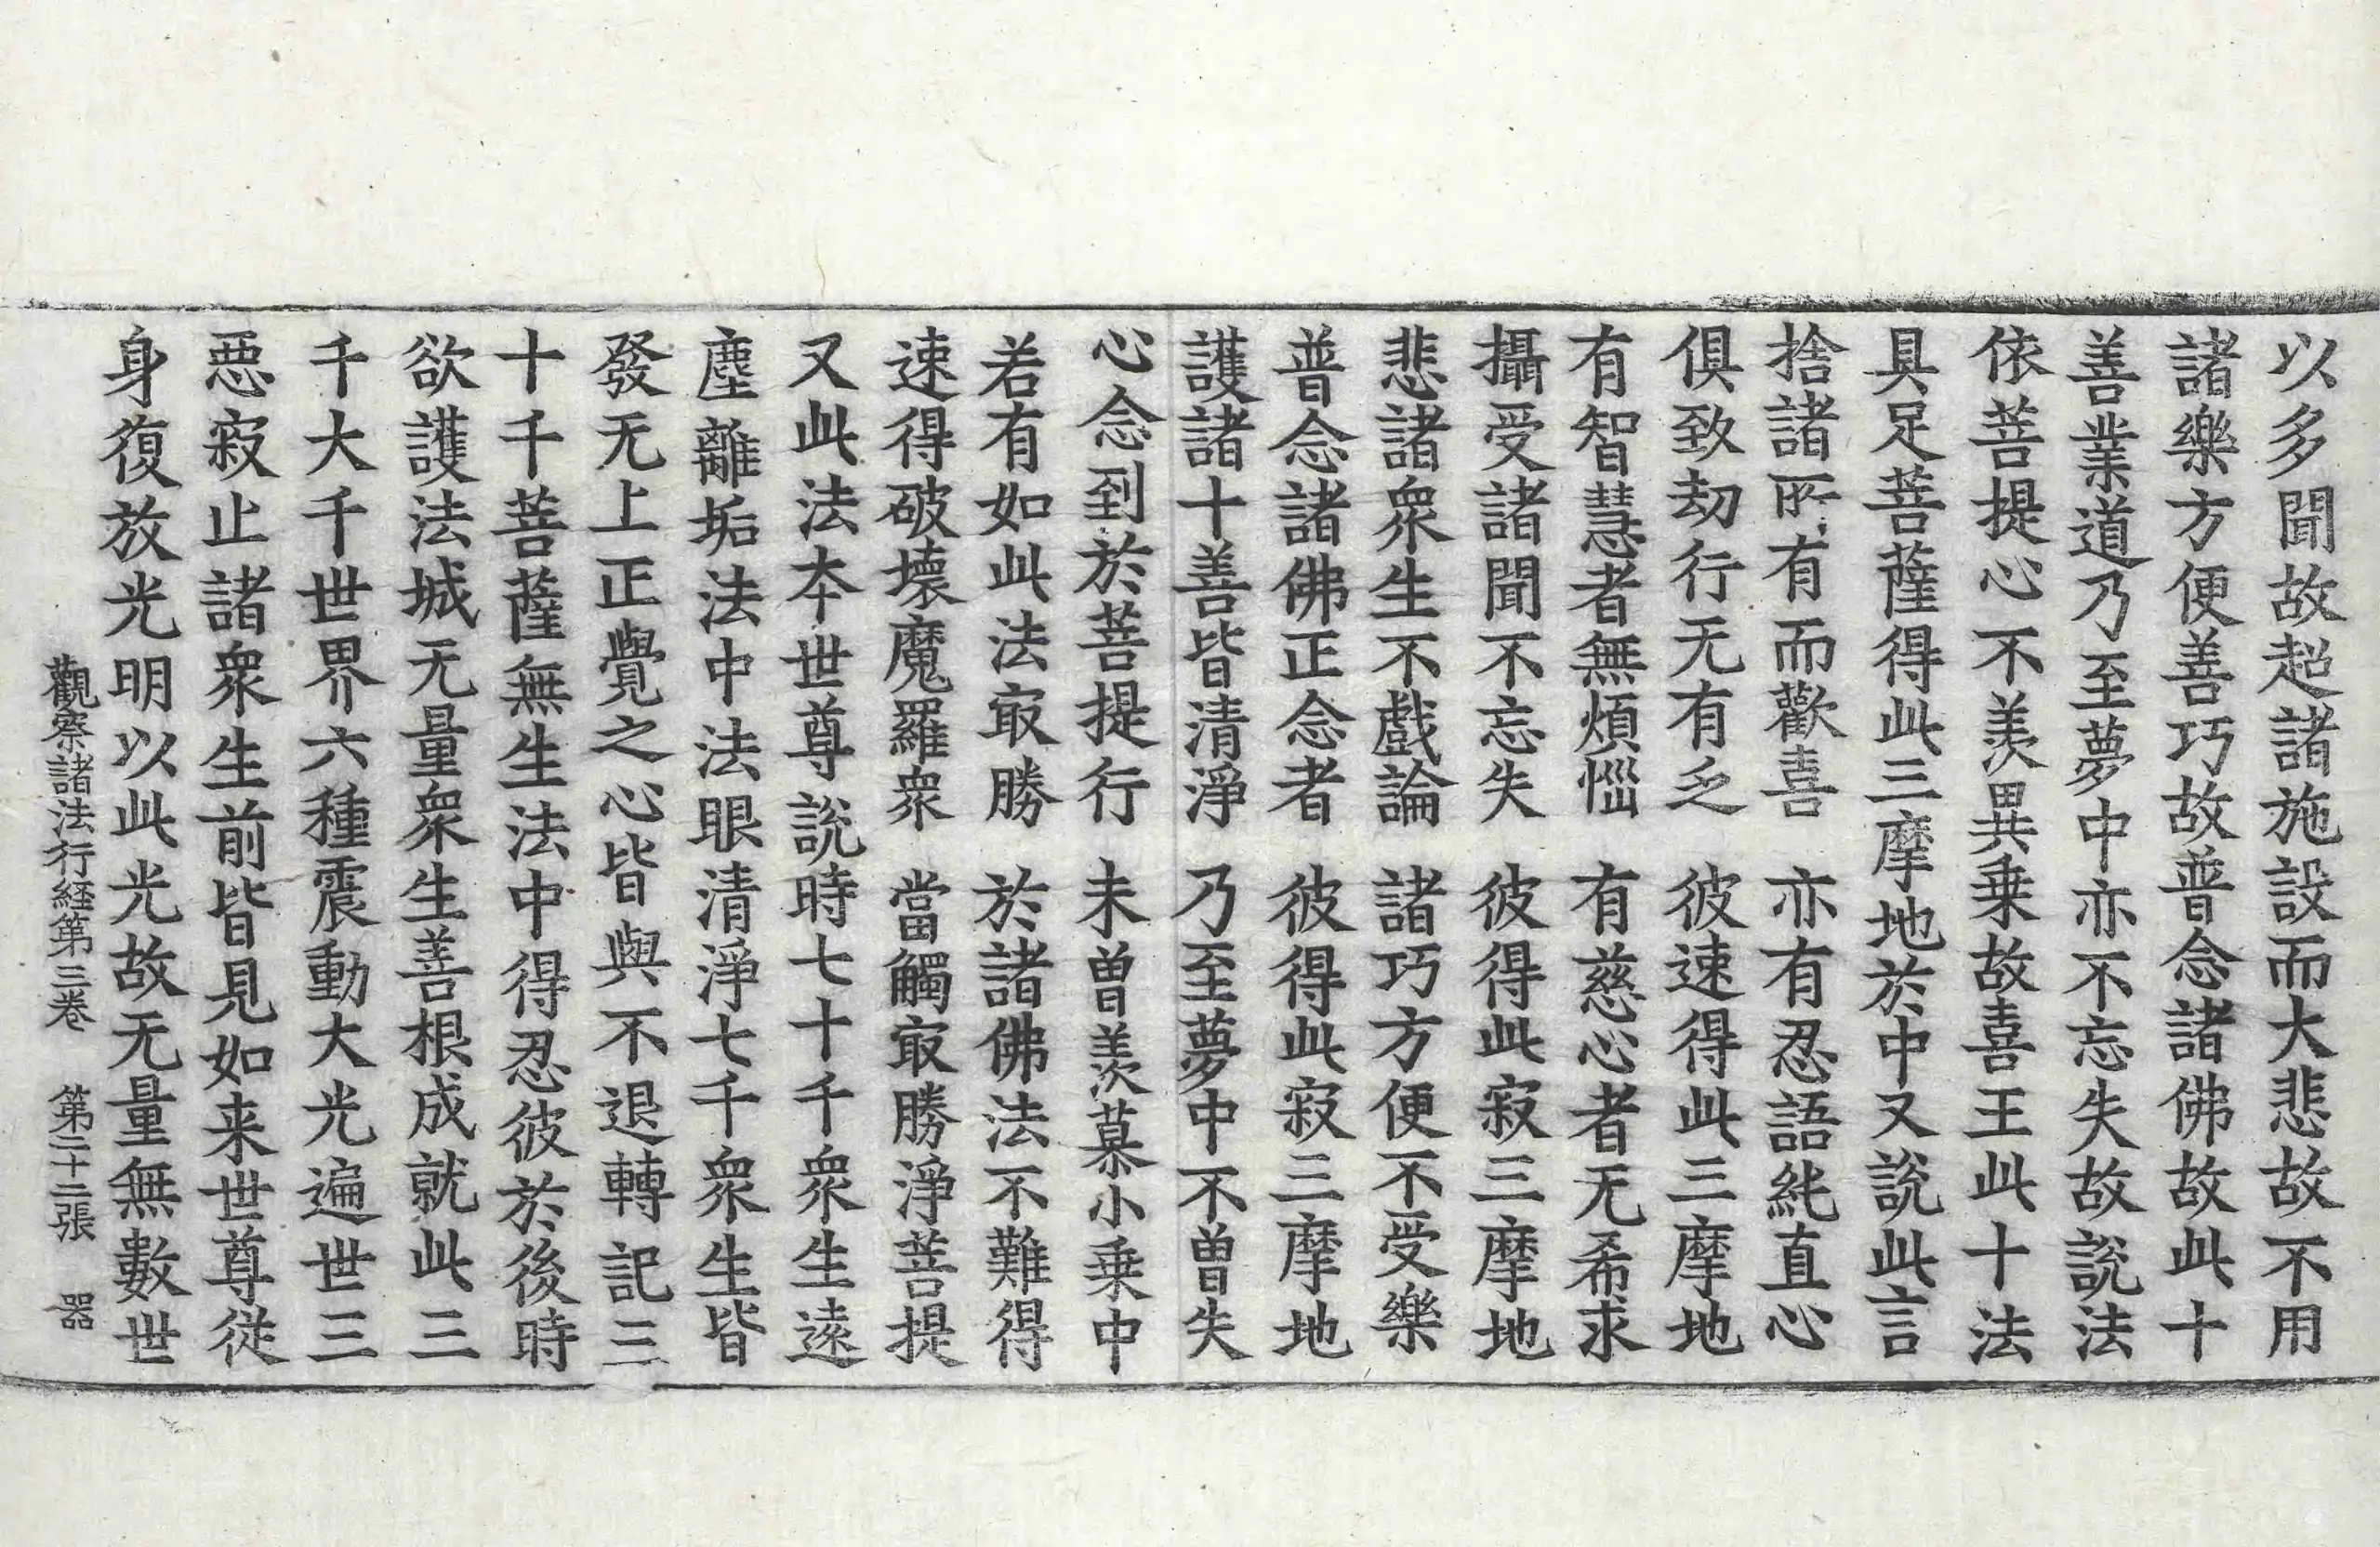 以多聞故超諸施設而大悲故不用
諸樂方便善巧故普念諸佛故此十
善業道乃至夢中亦不忘失故說法
依菩提心不羨異乗故喜王此十法
具足菩薩得此三摩地於中又說此言
捨諸所有而歡喜　亦有忍語純直心
俱致劫行无有乏　彼速得此三摩地
有智慧者無煩惱　有慈心者无希求
攝受諸聞不忘失　彼得此寂三摩地
悲諸衆生不戲論　諸巧方便不受樂
普念諸佛正念者　彼得此寂三摩地
護諸十善皆清淨　乃至夢中不曽失
心念到於菩提行　未曽羨慕小乗中
若有如此法冣勝　於諸佛法不難得
速得破壞魔羅衆　當觸冣勝淨菩提
又此法夲世尊說時七十千衆生遠
塵離垢法中法眼清淨七千衆生皆
發无上正覺之心皆與不退轉記三
十千菩薩無生法中得忍彼於後時
欲護法城无量衆生善根成就此三
千大千世界六種震動大光遍世三
惡寂止諸衆生前皆見如来世尊從
身復放光明以此光故无量無數世
觀察諸法行経第三卷　第二十二張　器